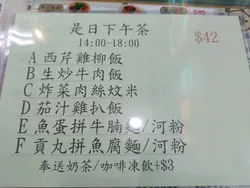 是日下午茶
14:00-18:00
$42
A 西芹雞柳飯
B 生炒牛肉飯
C 炸菜肉絲炆米
D 茄汁雞扒飯
E 魚蛋拼牛腩麵/河粉
F 貢丸拼魚腐麵/河粉
奉送奶茶/咖啡凍飲+$3